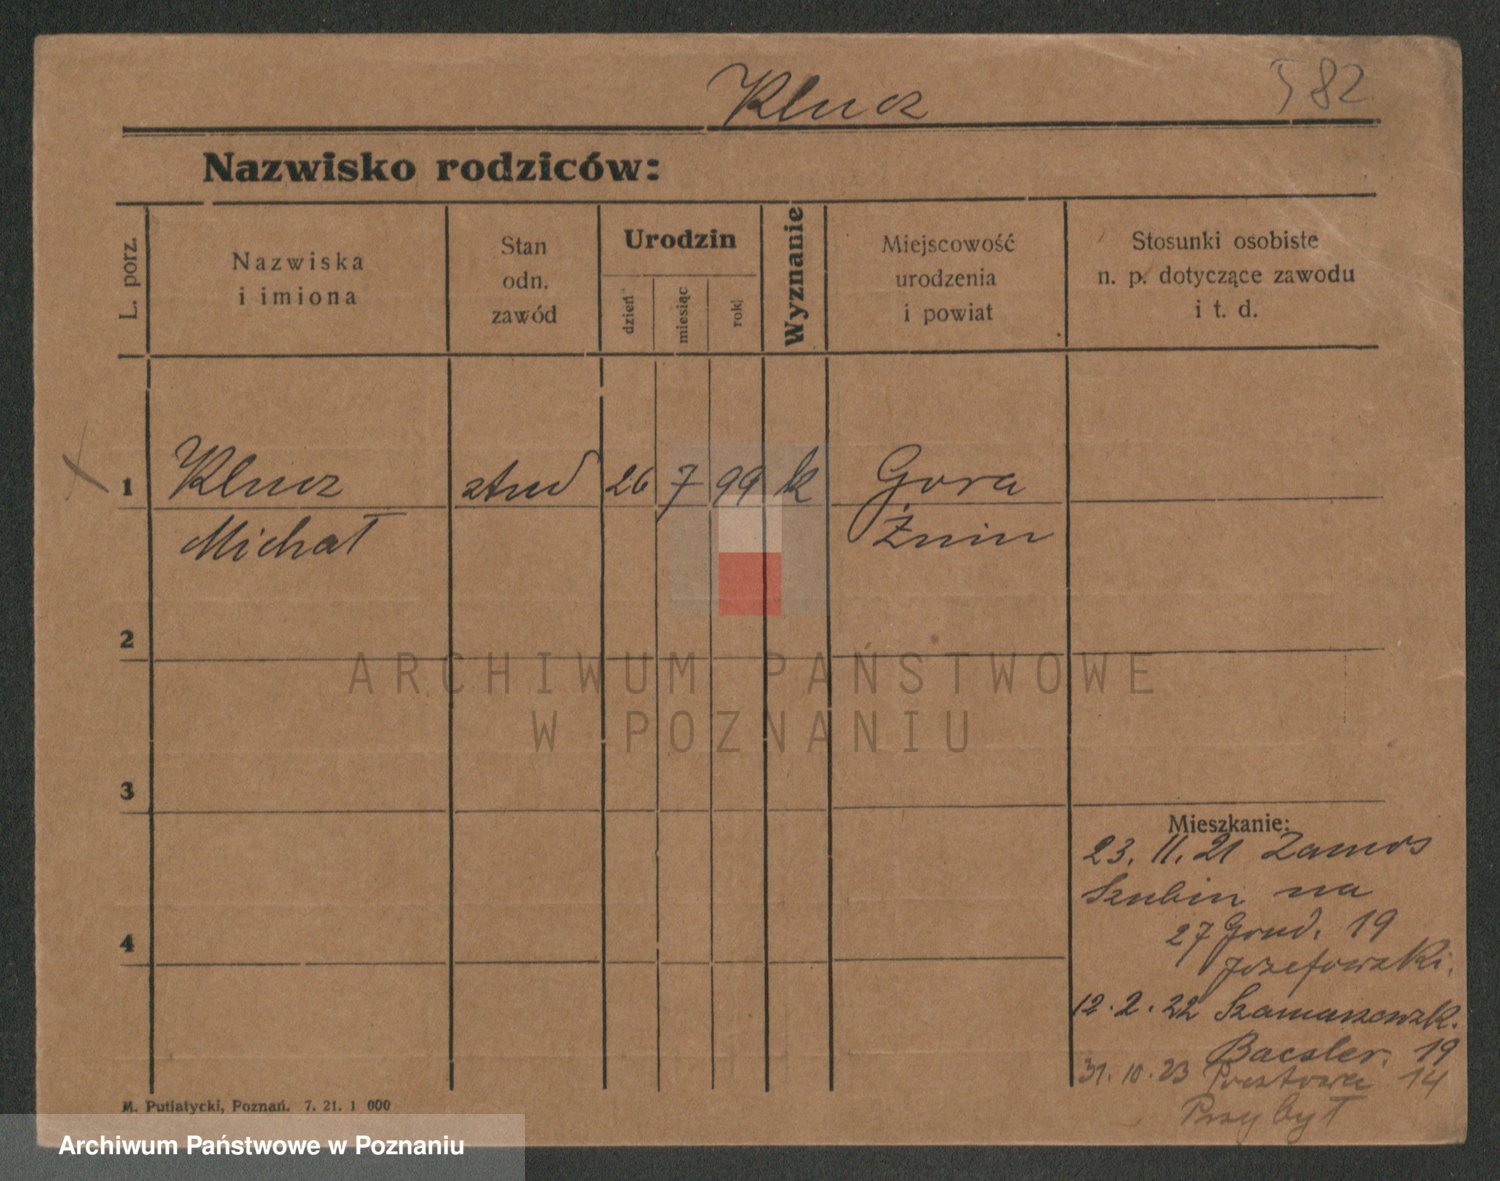 Klucz
582
Nazwisko rodziców:
L. porz.
Nazwiska
i imiona
Stan
odn.
zawód
Urodzin
dzień
miesiąc
rok
Wyznanie
Miejscowość
urodzenia
i powiat
Stosunki osobiste
n. p. dotyczące zawodu
i t. d.
1 Klucz stud 26 7 99 k Gora
Michał Żnin
2
3
4
Mieszkanie:
23. 11. 21
Szubin na
27 Grud. 19
Józefowski.
12. 2. 22
19
31. 10. 23 Pocztowa 14
Przybył
M. Putiatycki, Poznań. 7. 21. 1 000
ARCHIWUM PAŃSTWOWE
W POZNANIU
Archiwum Państwowe w Poznaniu